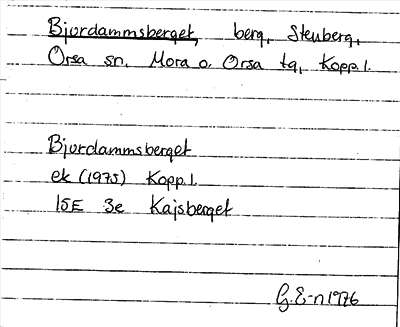 Bjurdammsberget, berg, Stenberg,
Orsa sn. Mora o. Orsa tg, Kopp.l.
Bjurdammsberget
ek (1975) Kopp.l.
15E 3e Kajsberget
G.E-n 1976